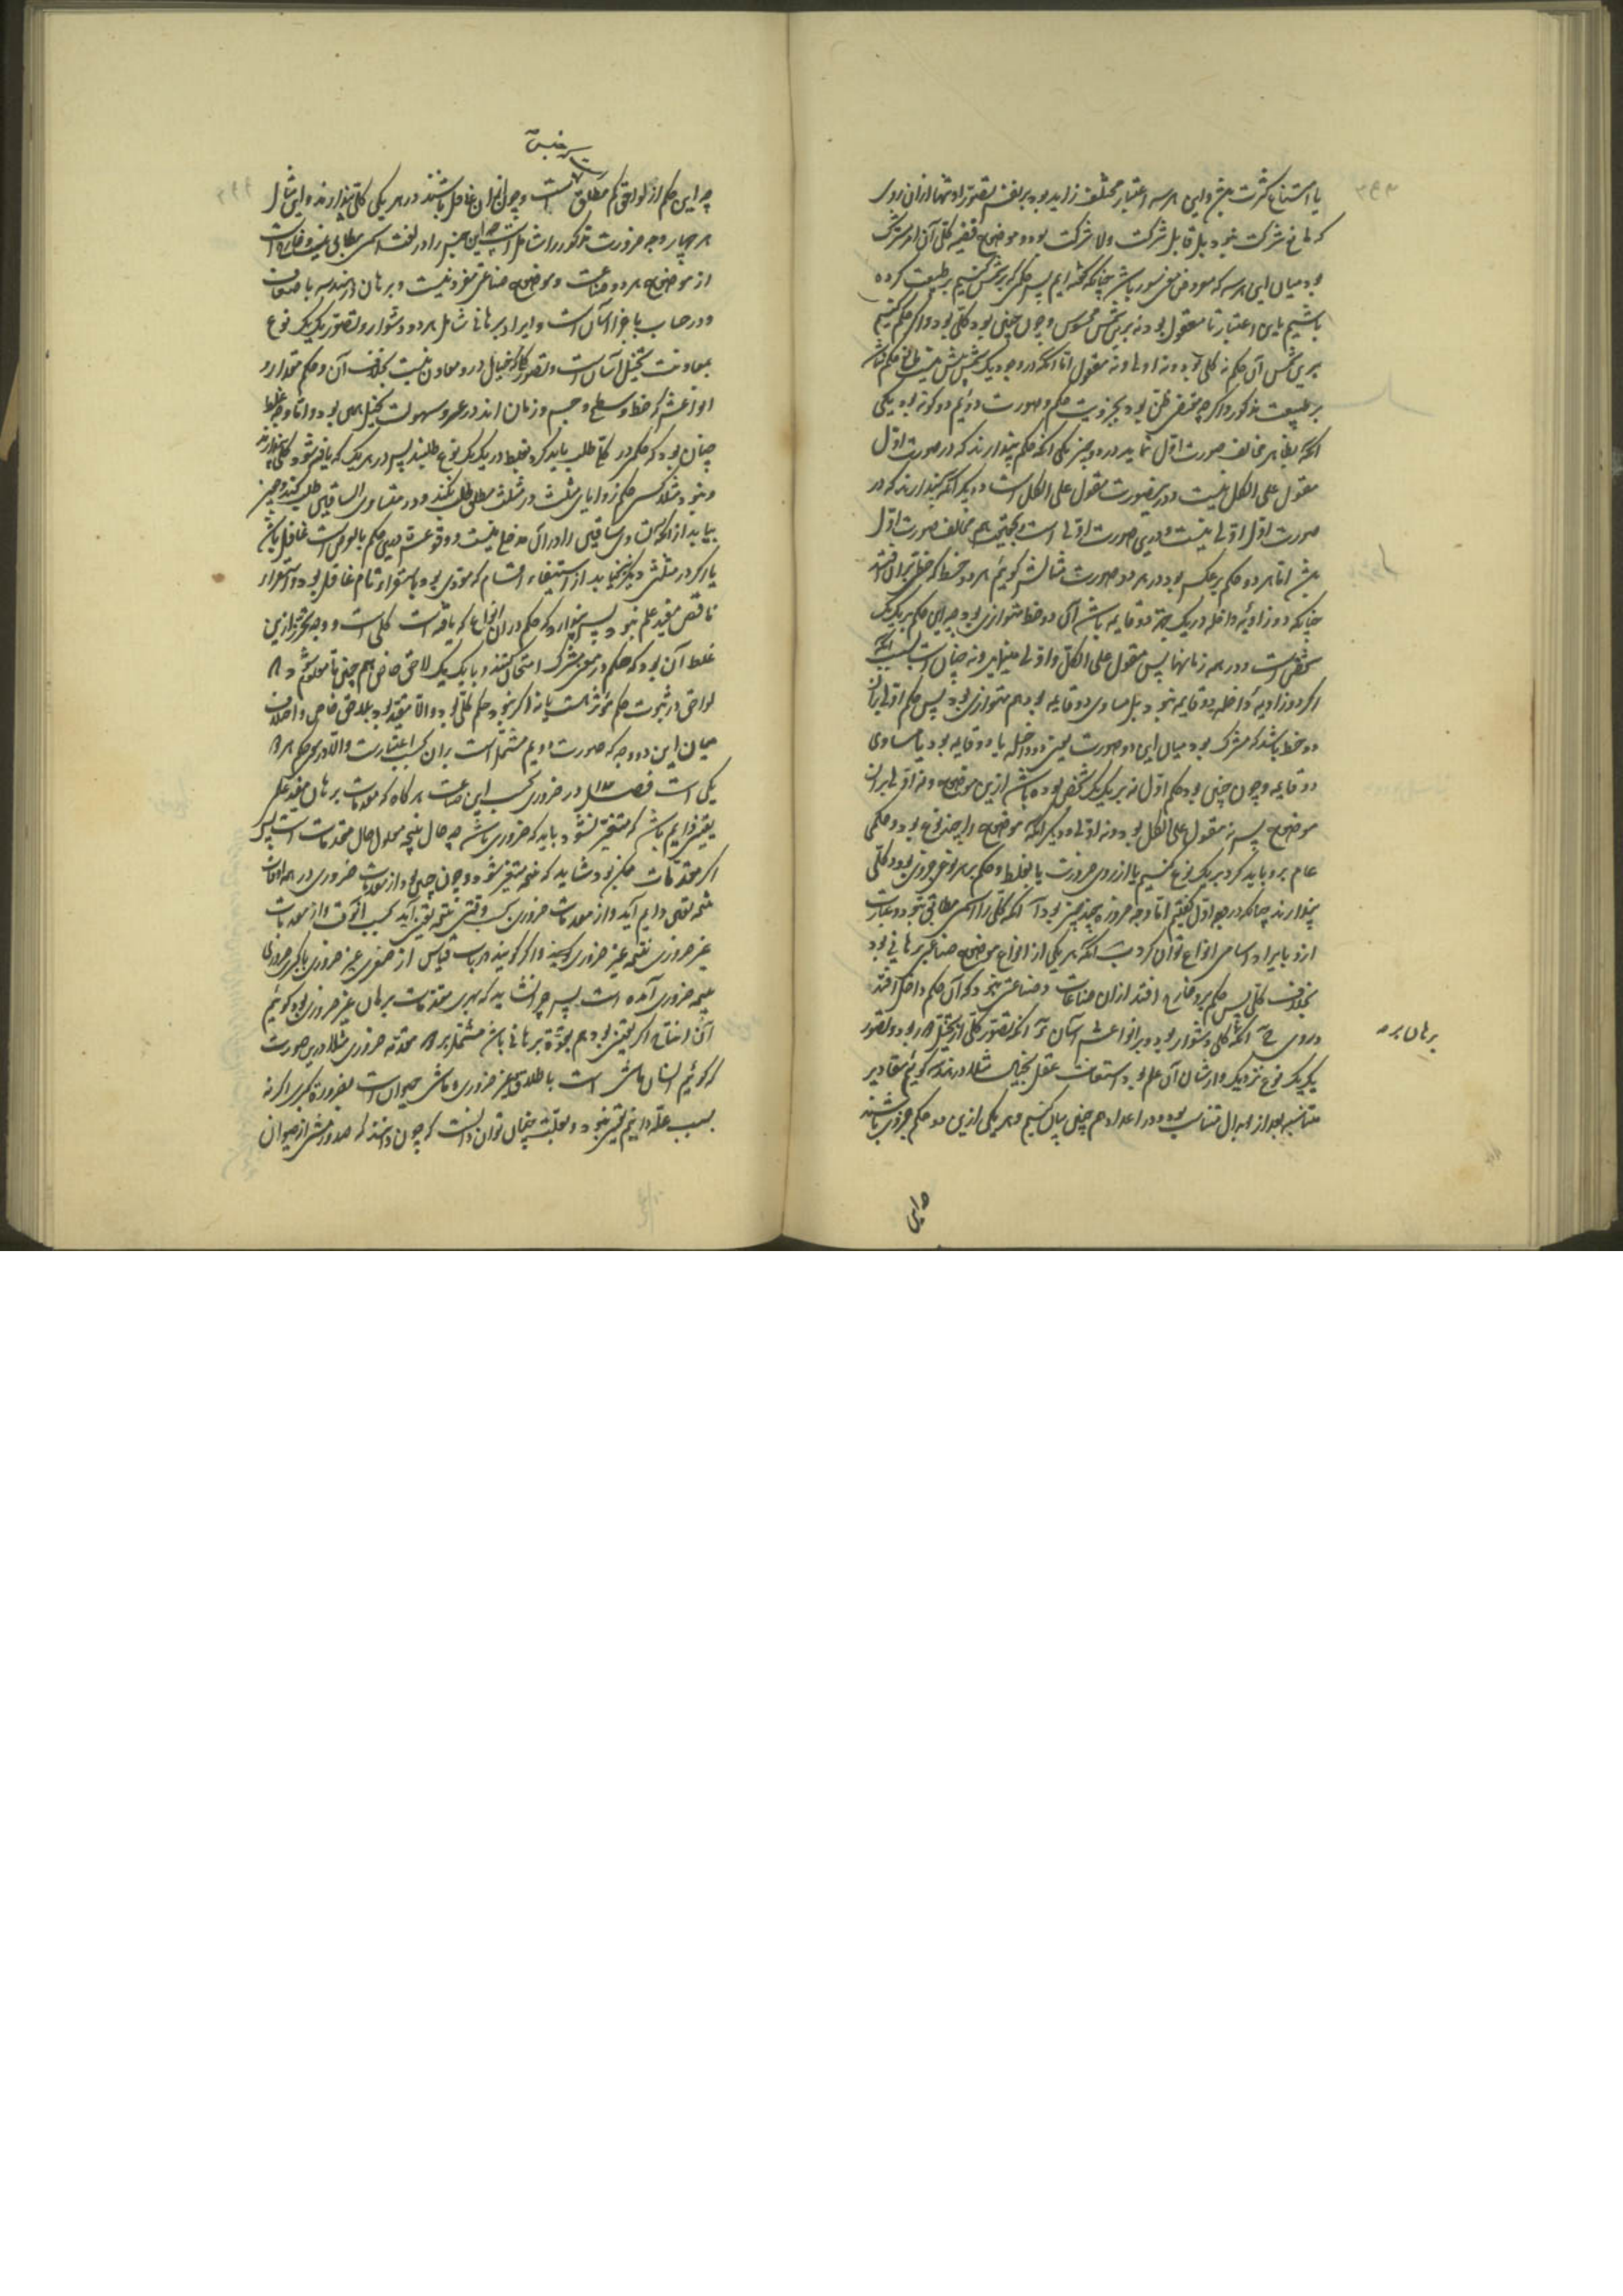 یا امتناع کثرت بشر و این هر سه اعتبار مختلف زاید بود بر نفس تصور او تنها از ان روی
که مانع شرکت نبود بل قابل شرکت ولا شرکت بود و موضوع قضیه کلی آن امر مشترک
بود میان این هر سه که معروض معنی سور باشد چنانکه گفته ایم پس حکمی که بر شمس کنیم بر طبیعت کرده
باشیم باین اعتبار تا معقول بود نه برین شمس محسوس و چون چنین بود کلی بود و اگر حکم کنیم
برین شمس آن حکم نه کلی بود و نه اولی و نه معقول اما آنکه در وجود یک شمس بیش نیست حکم
بر طبیعت مذکور و اگر چه مقتضی ظن بود بجزویت حکم و صورت دوئم دو گونه بود یکی
آنکه بظاهر مخالف صورت اول نماید در دو چیز یکی آنکه حکم پندارند که در صورت اول
مقول علی الکل نیست و در ینصورت مقول علی الکل است و دیگر آنکه پندارند که در
صورت اول اولی نیست و درین صورت اولی است و بحقیقت هم مخالف صورت اول
اما هر دو حکم بر عکس بود در هر دو صورت مثالش گوئیم هر دو خط که خطی بران افتد
چنانکه دو زاویه داخله در یک جهة دو قایمه باشد آن دو خط متوازی بود چه این حکم بر یک یک
شخص است و در همه زمانها پس مقول علی الکل و اولی مینماید و نه چنان است بسبب آنکه
اگر دو زاویه داخله دو قایمه نبود بل مساوی دو قایمه بود هم متوازی بود پس حکم اولی بان
دو خط باشد که مشترک بود میان این دو صورت یعنی دو داخله یا دو قایمه بود یا مساوی
دو قایمه و چون چنین بود حکم اول نه بر یک یک شخص بوده باشد ازین موضوع و نه اولی بران
موضوع پس نه مقول علی الکل بود و نه اولی و دیگر آنکه موضوع را چند نوع بود و حکمی
عام برو باید کرد بر یک نوع کنیم یا از روی ضرورت یا بغلط و حکم بر هر نوعی جزوی بود و کلی
پندارند چنانکه در وجه اول گفتیم اما وجه ضرورة بچند چیز بود آ آنکه کلی را اسمی مطابق نبود و عبارت
ازو بایراد اسامی انواع توان کرد ب آنکه هر یکی از انواع موضوع صناعتی برهانی بود
بخلاف کلی پس حکم برو خارج افتد ازان صناعات و صناعتی نبود که آن حکم داخل افتد
دروی ج آنکه کلی دشوار بود و بر انواعش آسان د آنکه تصور کلی از تخیل دور بود و تصور
یک یک نوع نزدیک و ازشان آن علم بود استعانت عقل بخیال مثلا در هندسه گوئیم مقادیر
متناسبه بعد از ابدال متناسب بود و در اعداد هم چنین بیان کنیم و هر یکی ازین دو حکم جزوی باشند
برهان بر مه
و این
چه این حکم از لواحق کم مطلق است و چون ازان غافل باشند در هر یکی کلی پندارند و این مثال
هر چهار وجه ضرورت مذکور را شامل است چه این جنس را در لغت اسمی مطابق نیست و خارج است
از موضوع هر دو صناعت و موضوع صناعتی مفرد نیست و برهان در هندسه باضعاف
و در حساب باجزا آسان است و ایراد برهانی شامل هر دو دشوار و تصور یک یک نوع
بمعاونت تخیل آسان است و تصور کلی که خیال در و معاون نیست بخلاف آن و حکم مقدار و
انواعش که خط و سطح و جسم و زمان اند در عسر و سهولت تخیل همین بود و اما وجه غلط
چنان بود که حکمی در کلی طلب باید کرد بغلط در یک یک نوع طلبند پس در هر یک که یافته شود کلی پندارند
و نبود مثلا کسی حکم زوایای مثلث در مثلث مطلق طلب نکند و در متساوی الساقین طلب کند و چون
بیابد از آنکه تساوی ساقین را در آن مدخلی نیست و وقوعش درین حکم بالعرض است غافل باشد
یا اگر در مثلثی دیگر نیابد از استیفاء اقسام که مؤدی بود باستقراء تام غافل بود و استقراء
ناقص مفید علم نبود پس پندارد که حکم در ان انواع که یافته است کلی است و وجه تحرز ازین
غلط آن بود که حکم در معنی مشترک امتحان کنند و با یک یک لاحق خاص هم چنین تا معلوم شود
لواحق در ثبوت حکم مؤثر هست یا نه اگر نبود حکم کلی بود و الا مقید بود بلاحق خاص و اختلاف
میان این دو وجه که صورت دویم مشتمل است بران بحسب اعتبارست و الا در هر دو حکم
یکی است فصل در ضروری بحسب این صناعت هر گاه که مقدمات برهان مفید علم
یقینی دایم باشد که متغیر نشود باید که ضروری باشد چه حال نتیجه معلول حال مقدمات است پس
اگر مقدمات ممکن بود شاید که نتیجه متغیر شود و چون چنین بود از مقدمات ضروری در همه اوقات
نتیجه یقینی دایم آید و از مقدمات ضروری بحسب وقتی نتیجه یقینی آید بحسب آنوقت و از مقدمات
غیر ضروری نتیجه غیر ضروری و اگر گویند در باب قیاس از صغری غیر ضروری با کبری ضروری
نتیجه ضروری آمده است پس چرا نشاید که بهری مقدمات برهان غیر ضروری بود گوئیم
آن انتاج اگر یقینی بود هم بقوة برهانی باشد مشتمل بر مقدمه ضروری مثلا درین صورت
که گوئیم انسان ماشی است باطلاق غیر ضروری و ماشی حیوان است بضرورة کبری اگر نه
بسبب علة دانیم یقینی نبود و بعلت چنان توان دانست که چون دانند که صدور مشی از حیوان